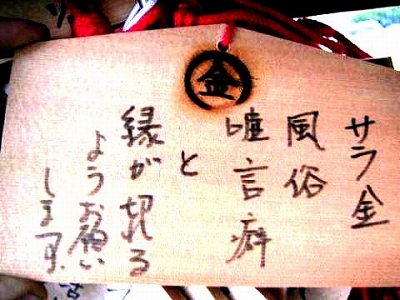 金
サラ金
風俗
嘘言癖
と
縁が切れる
ようお願い
します。